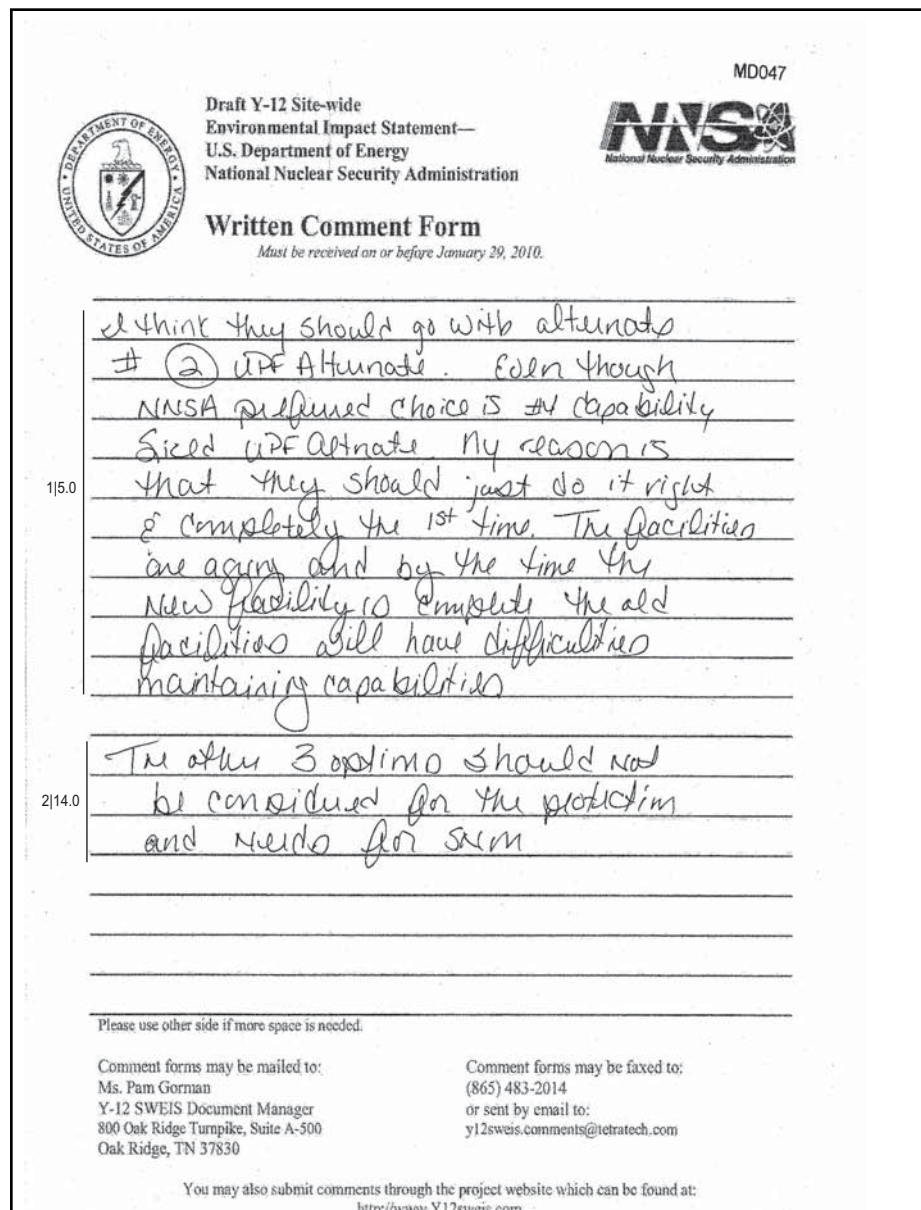 MD047
Draft Y-12 Site-wide
Environmental Impact Statement—
U.S. Department of Energy
National Nuclear Security Administration
DEPARTMENT OF ENERGY
UNITED STATES OF AMERICA
NNSA
National Nuclear Security Administration
Written Comment Form
Must be received on or before January 29, 2010.
I think they should go with alternate
# 2 UPF Alternate. Even though
NNSA preferred choice is #4 Capability
Sized UPF Altnate. My reason is
1|5.0
that they should just do it right
& completely the 1st time. The facilities
are aging and by the time the
New facility is complete the old
facilities will have diffficulties
maintaining capabilities
The other 3 options should not
2|14.0
be considered for the protection
and needs for SNM
Please use other side if more space is needed.
Comment forms may be mailed to:
Ms. Pam Gorman
Y-12 SWEIS Document Manager
800 Oak Ridge Turnpike, Suite A-500
Oak Ridge, TN 37830
Comment forms may be faxed to:
(865) 483-2014
or sent by email to:
y12sweis.comments@tetratech.com
You may also submit comments through the project website which can be found at:
http://www.Y12sweis.com